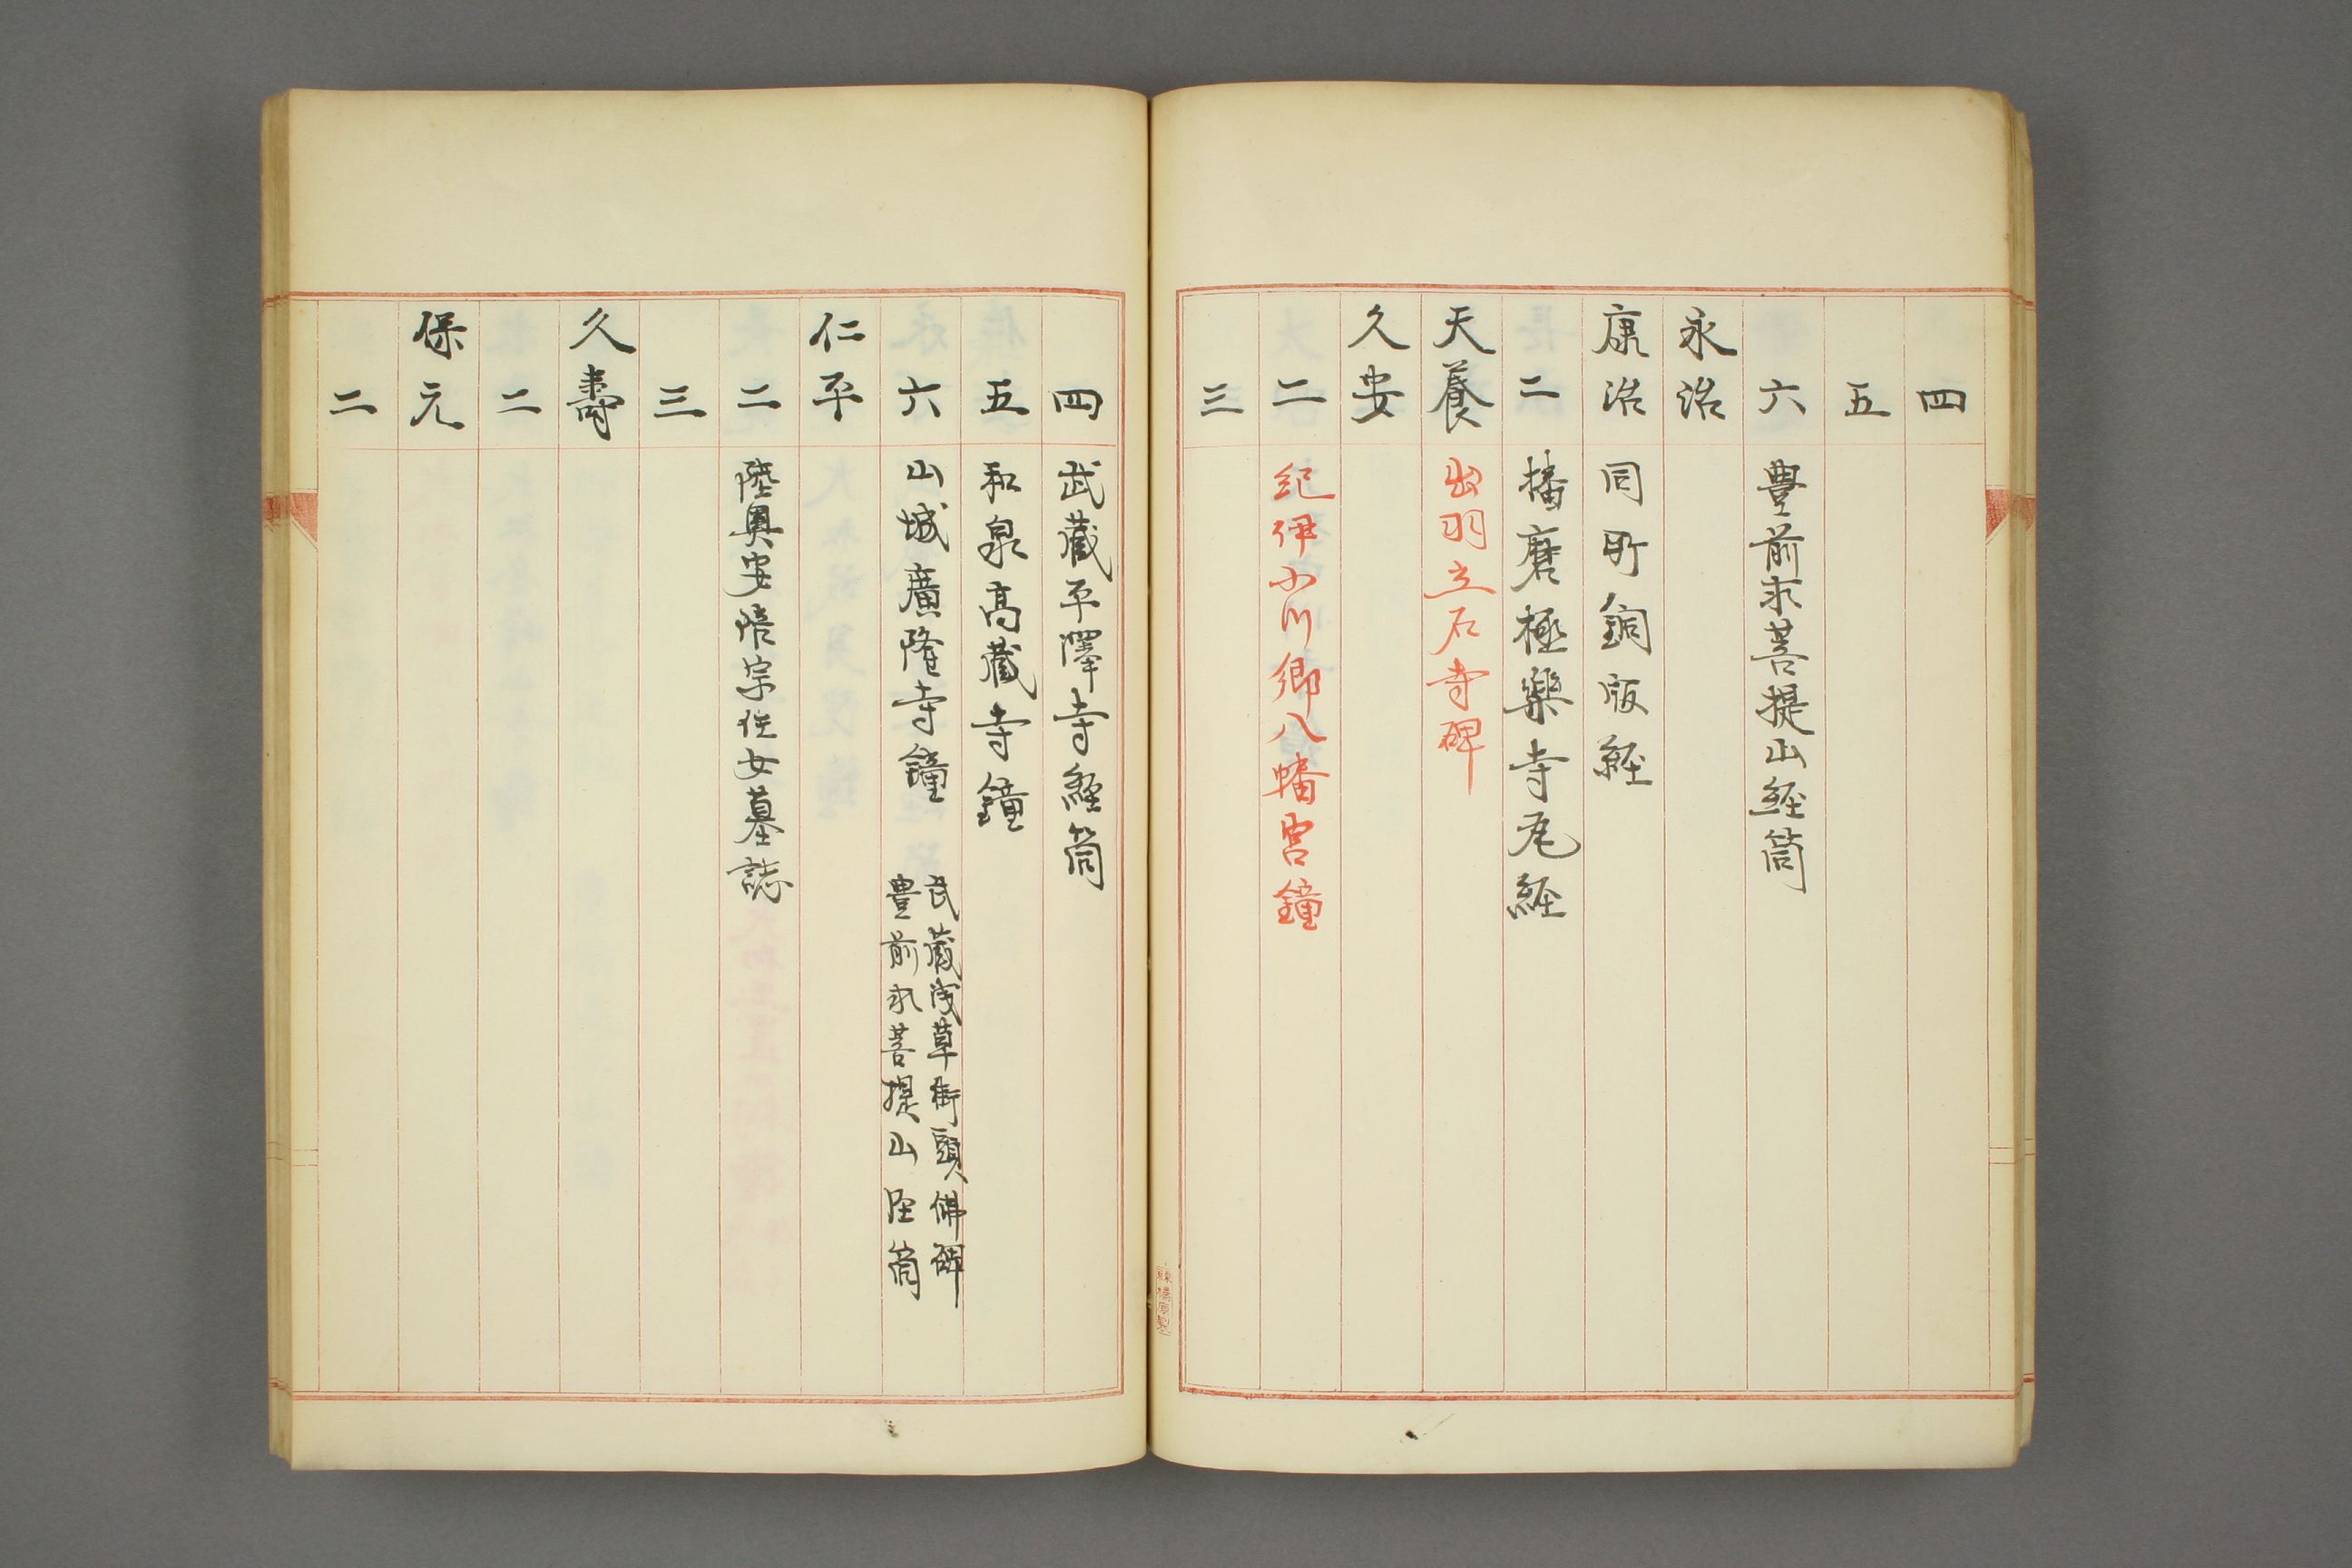 四
五
六 豊前求菩提山経筒
永治
康治 同町銅版経
二 播磨極楽寺瓦経
天養 出羽立石寺碑
久安
二 紀伊小川郷八幡宮鐘
三
四 武蔵平澤寺経筒
五 和泉高蔵寺鐘
六 山城廣隆寺鐘 武蔵浅草街頭佛碑
豊前求菩提山経筒
仁平
二 陸奥安陪宗任女墓誌
三
久壽
二
保元
二